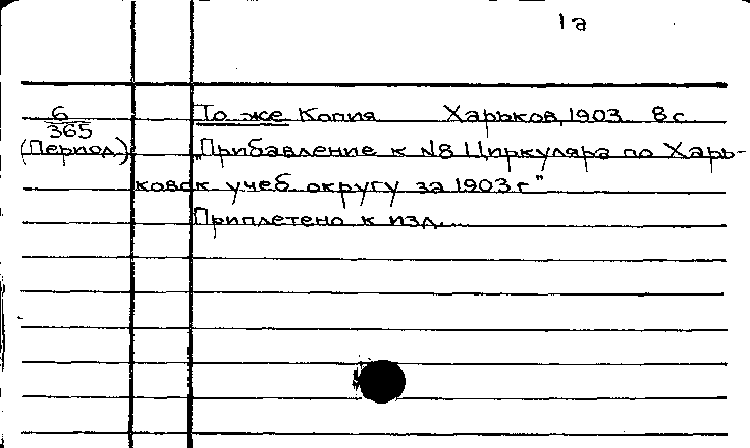 1а
6
365
(Период)
То же Копия Харьков, 1903 8 с
„Прибавление к №8 Циркуляра по Харь-
ковск учеб. округу за 1903 г"
Приплетено к изд....